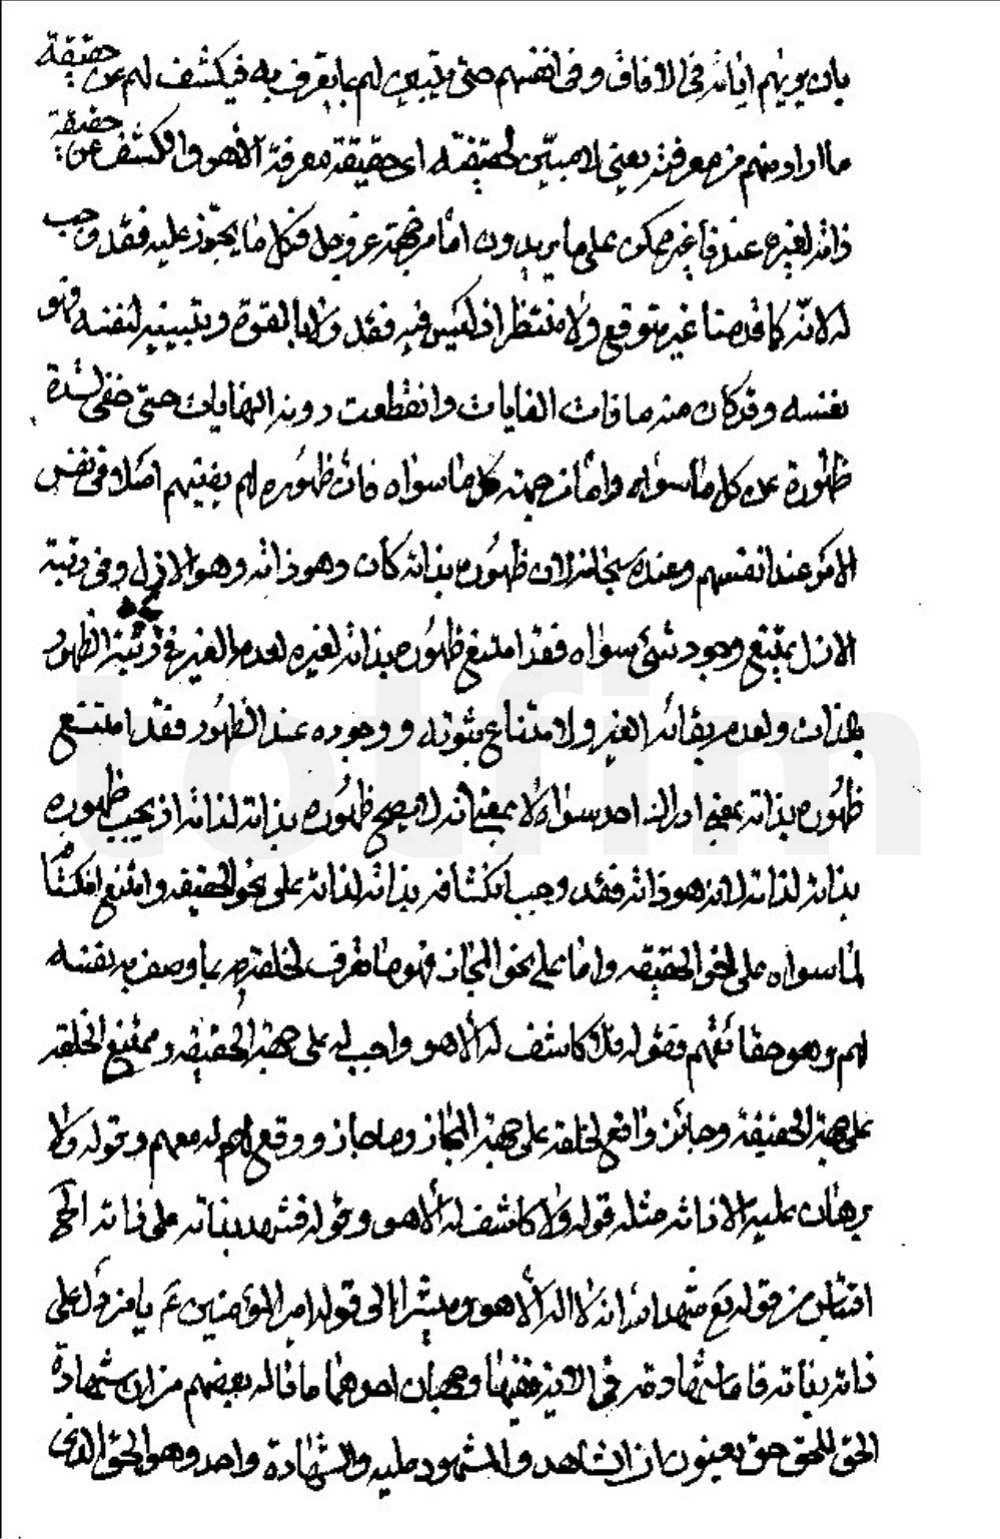 بان يريهم اياته في الافاق وفي انفسهم حتى يتبين لهم ما يعرف به فيكشف لهم عن حقيقة
ما اراد منهم من معرفته يعني لا مبيّن لحقيقته اى حقيقة معرفة الاهو والكشف عن حقيقة
ذاته لغيره عنده فاغير ممكن على ما يريدون امّا من جهته عزوجل فكل ما يجوز عليه فقد وجب
له لانّه كا قدمنا غير متوقع ولا منتظر اذ ليس فيه فقد ولا بالقوة وتبيينه لنفسه فهو
نفسه وقد كان منه ما فات الغايات وانقطعت دونه النهايات حتى خفى لشدة
ظهوره عن كل ما سواه وامّا من جهة كل ما سواه فان ظهوره لهم يفنيهم اصلا وفي نفس
الامر عند انفسهم وعنده سبحانه لان ظهوره بذاته كان وهو ذاته وهو الازل وفي رتبة
الازل يمتنع وجود شئ سواه فقد امتنع ظهوره بذاته لغيره لعدم الغير في رتبة الظهور
بالذات ولعدم بقائه الغير ولامتناع ثبوته ووجوده عند الظهور فقد امتنع
ظهوره بذاته بمعنى ادراك احد سواه لا بمعنى انه لا يصح ظهوره بذاته لذاته اذ يجب ظهوره
بذاته لذاته لانه هو ذاته فقد وجب انكشافه بذاته لذاته على نحو الحقيقه وامتنع انكشافه
لما سواه على نحو الحقيقه واما على نحو المجاز فهو ما تعرف لخلقه به بما وصف به نفسه
لهم وهو حقائقهم فقوله فلا كاشف له الا هو واجب له على جهة الحقيقه وممتنع لخلقه
على جهة الحقيقة وجائز واقع لخلقه على جهة المجاز وما جاز ووقع لهم له معهم وقوله ولا
برهان عليه الا ذاته مثله قوله ولا كاشف له الا هو وقوله فشهد بذاته على ذاته الخ
اقتباس من قوله تع شهد الله انه لا اله الا هو ومشيرا الى قول امير المؤمنين ع يا من دل على
ذاته بذاته فاما شهادته في الاية ففيها وجهان احدهما ما قاله بعضهم من ان شهادة
الحق للحق حق يعنون ان الشاهد والمشهود عليه والشهادة واحد وهو الحق الذى